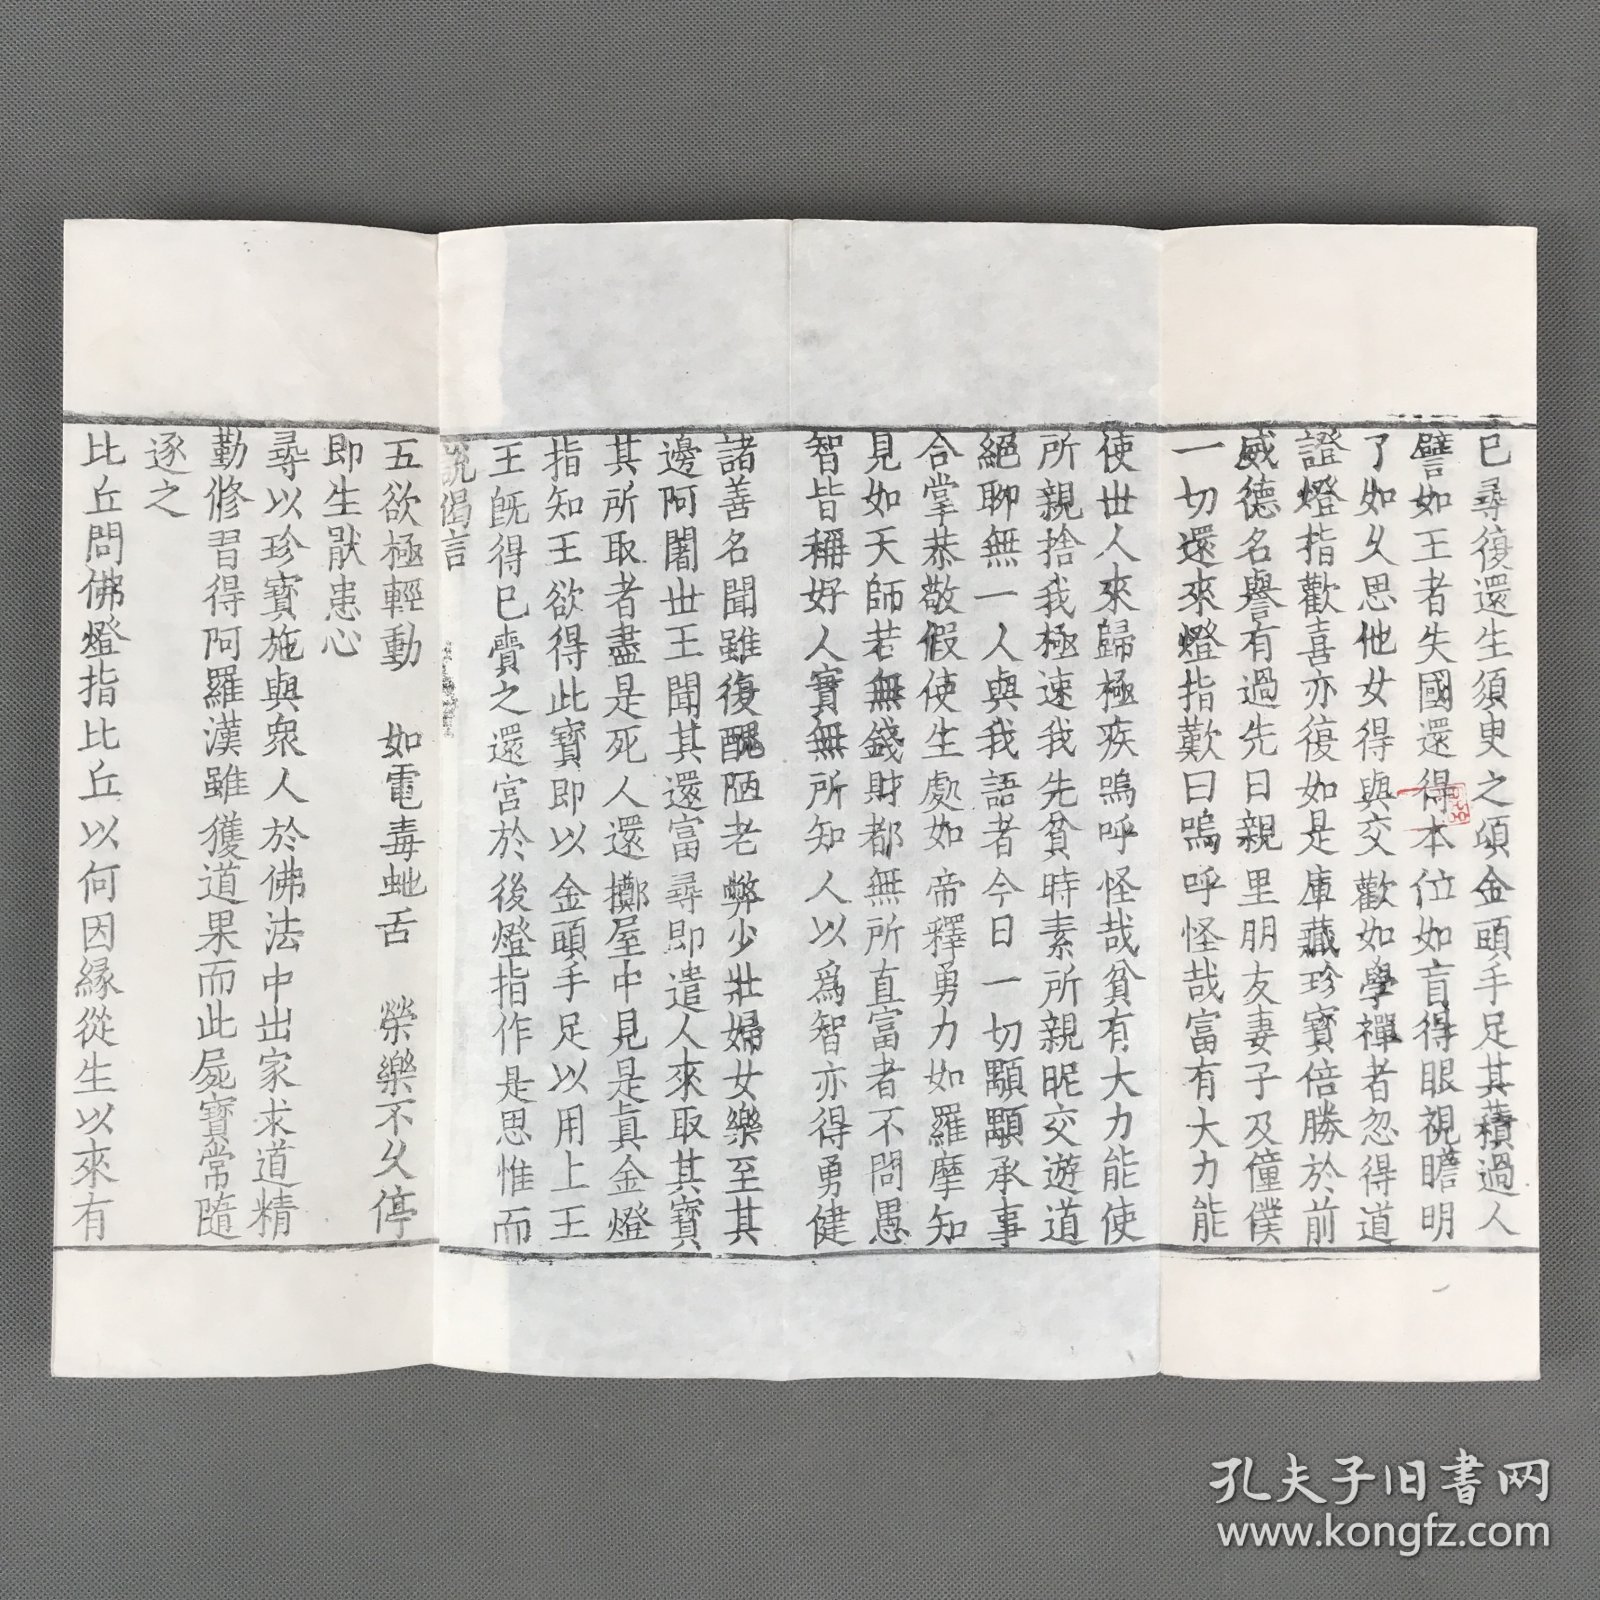 已尋復還生須臾之頃金頭手足其積過人
譬如王者失國還得本位如盲得眼視瞻明
了如久思他女得與交歡如學禪者忽得道
證燈指歡喜亦復如是庫藏珍寶倍勝於前
威德名譽有過先日親里朋友妻子及僮僕
一切還來燈指歎曰嗚呼怪哉富有大力能
使世人來歸極疾嗚呼怪哉貧有大力能使
所親捨我極速我先貧時素所親昵交遊道
絕聊無一人與我語者今日一切顒顒承事
合掌恭敬假使生處如帝釋勇力如羅摩知
見如天師若無錢財都無所直富者不問愚
智皆稱好人實無所知人以爲智亦得勇健
諸善名聞雖復醜陋老弊少壯婦女樂至其
邊阿闍世王聞其還富尋即遣人來取其寶
其所取者盡是死人還擲屋中見是真金燈
指知王欲得此寶即以金頭手足以用上王
王既得已賷之還宮於後燈指作是思惟而
說偈言
五欲極輕動 如電毒虵舌 榮樂不久停
即生猒患心
尋以珍寶施與衆人於佛法中出家求道精
勤修習得阿羅漢雖獲道果而此屍寶常隨
逐之
比丘問佛燈指比丘以何因緣從生以來有
孔夫子旧书网
www.kongfz.com